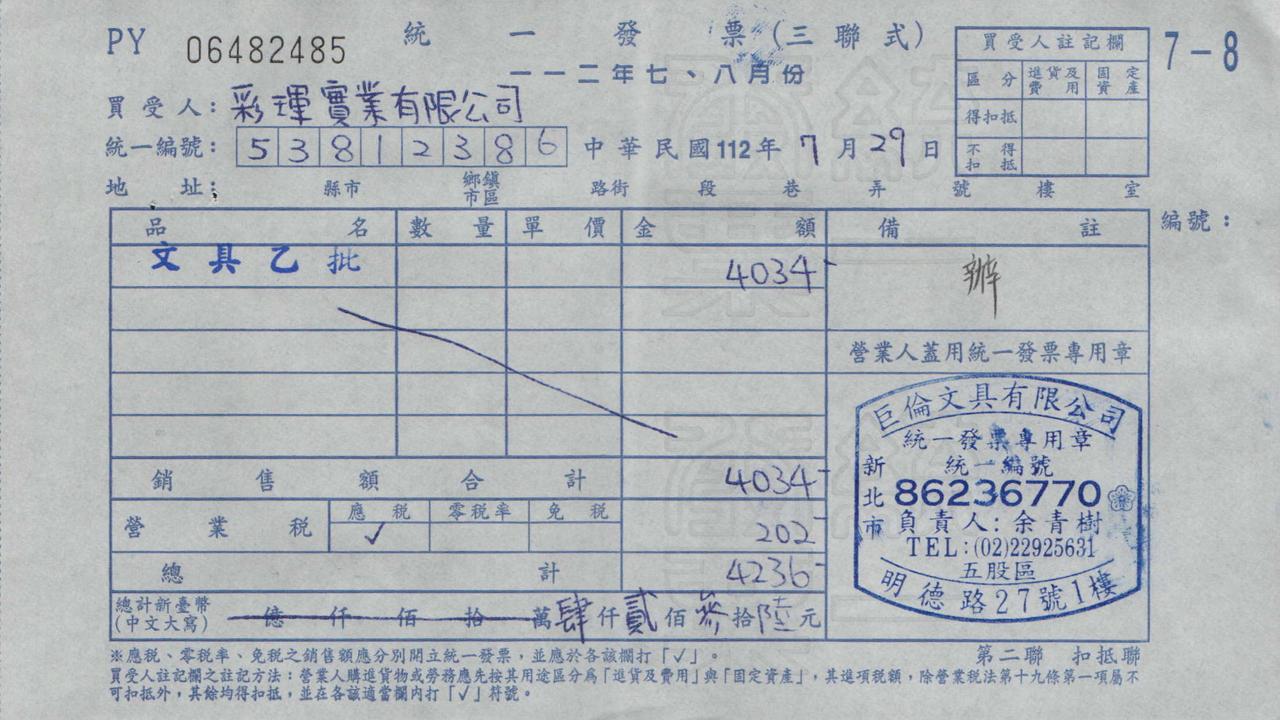 PY 06482485 統一發票(三聯式)
7-8
一一二年七、八月份
買受人註記欄
區分 進貨及費用 固定資產
得扣抵
不得扣抵
買受人：彩琿實業有限公司
統一編號：53812386 中華民國112年7月29日
地址： 縣市 鄉鎮市區 路街 段 巷 弄 號 樓 室
品名 數量 單價 金額 備註 編號：
文具乙批 4034 辦
營業人蓋用統一發票專用章
銷售額合計 4034
營業稅 應稅 零稅率 免稅
✓ 202
總計 4236
總計新臺幣(中文大寫) 億仟佰拾萬肆仟貳佰參拾陸元
巨倫文具有限公司
統一發票專用章
新北市
統一編號
86236770
負責人：余青樹
TEL:(02)22925631
五股區
明德路27號1樓
※應稅、零稅率、免稅之銷售額應分別開立統一發票，並應於各該欄打「✓」。
第二聯 扣抵聯
買受人註記欄之註記方法：營業人購進貨物或勞務應先按其用途區分為「進貨及費用」與「固定資產」，其進項稅額，除營業稅法第十九條第一項屬不
可扣抵外，其餘均得扣抵，並在各該適當欄內打「✓」符號。